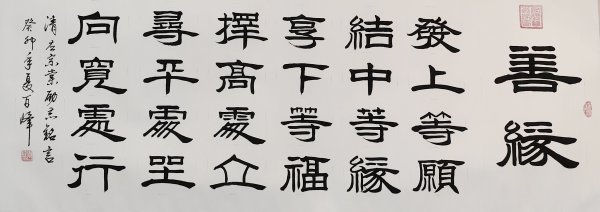 善緣
發上等願
結中等緣
享下等福
擇高處立
尋平處坐
向寬處行
清左宗棠勵志銘言
癸卯年夏百峰